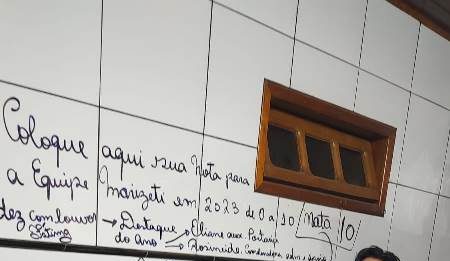 Coloque aqui sua Nota para
a Equipe Marizeti em 2023 de 0 a 10 / Nota 10 /
dez com louvor → Destaque → Eliane aux. Portaria
do ano → Rosineide. Coordenadora